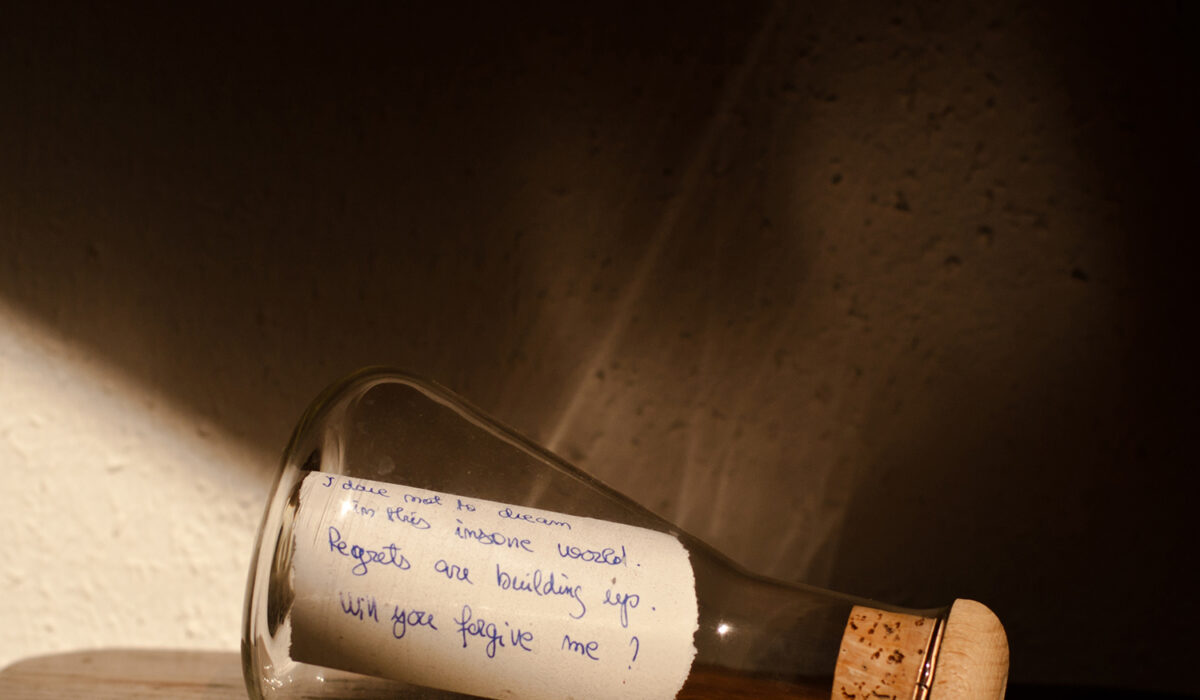 I dare not to dream
in this insane world.
Regrets are building up.
Will you forgive me ?